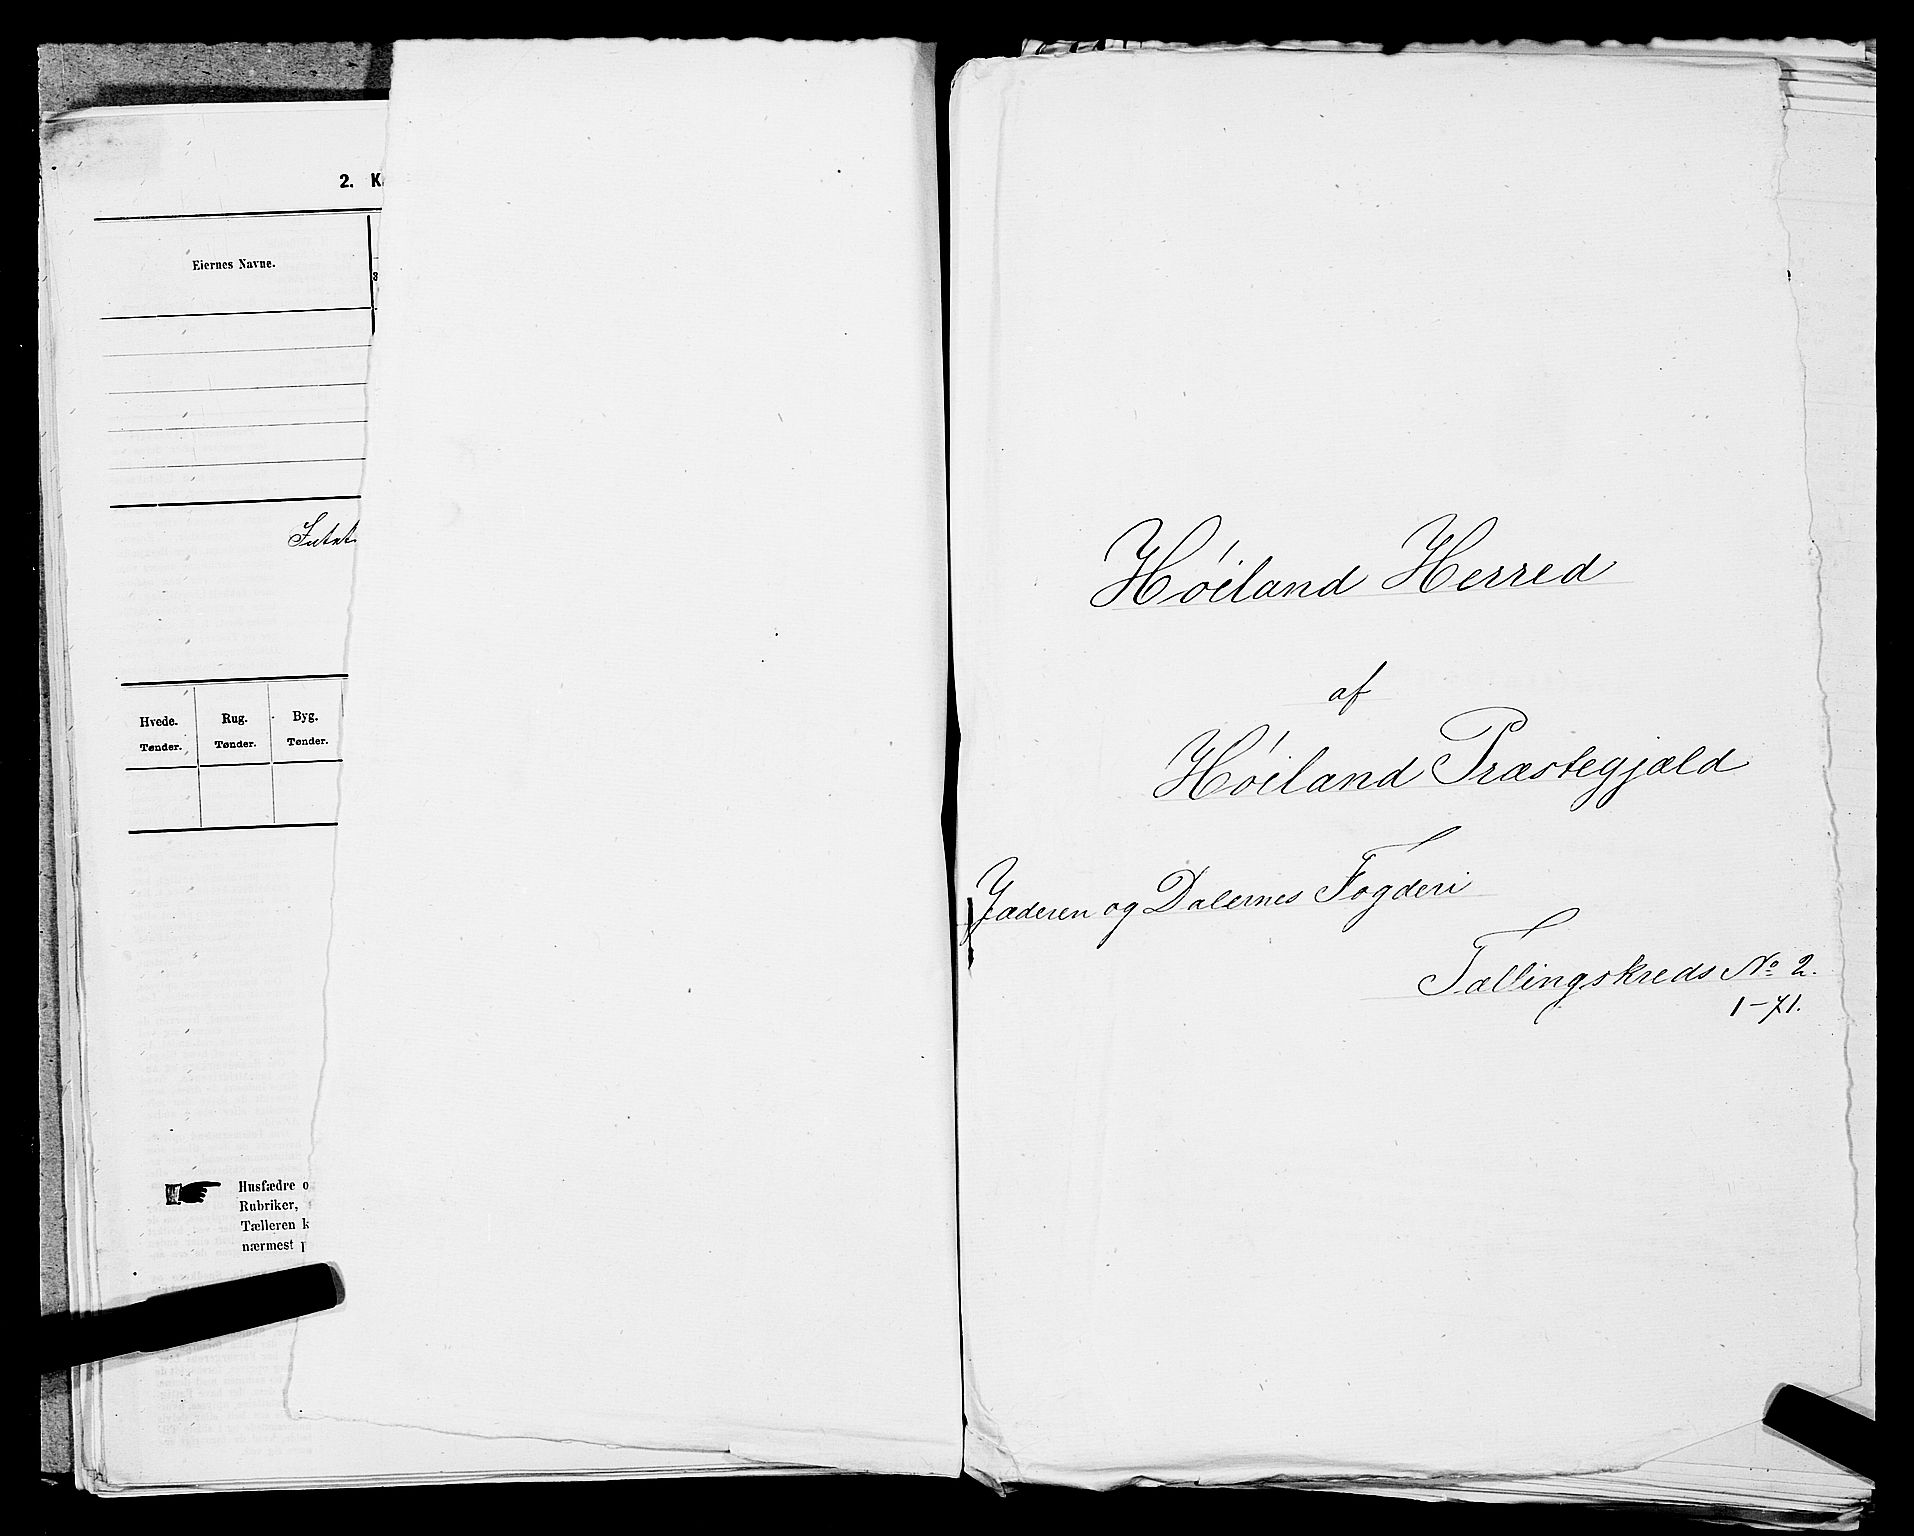 2.
Eiernes Navne.
Hvede. Rug. Byg.
Tønder. Tønder. Tønder.
Husfædre
Rubriker,
Tælleren
nærmest
Høiland Herred
af
Høiland Præstegjæld
Jæderen og Dalernes Fogderi
Tællingskreds No 2.
1-71.